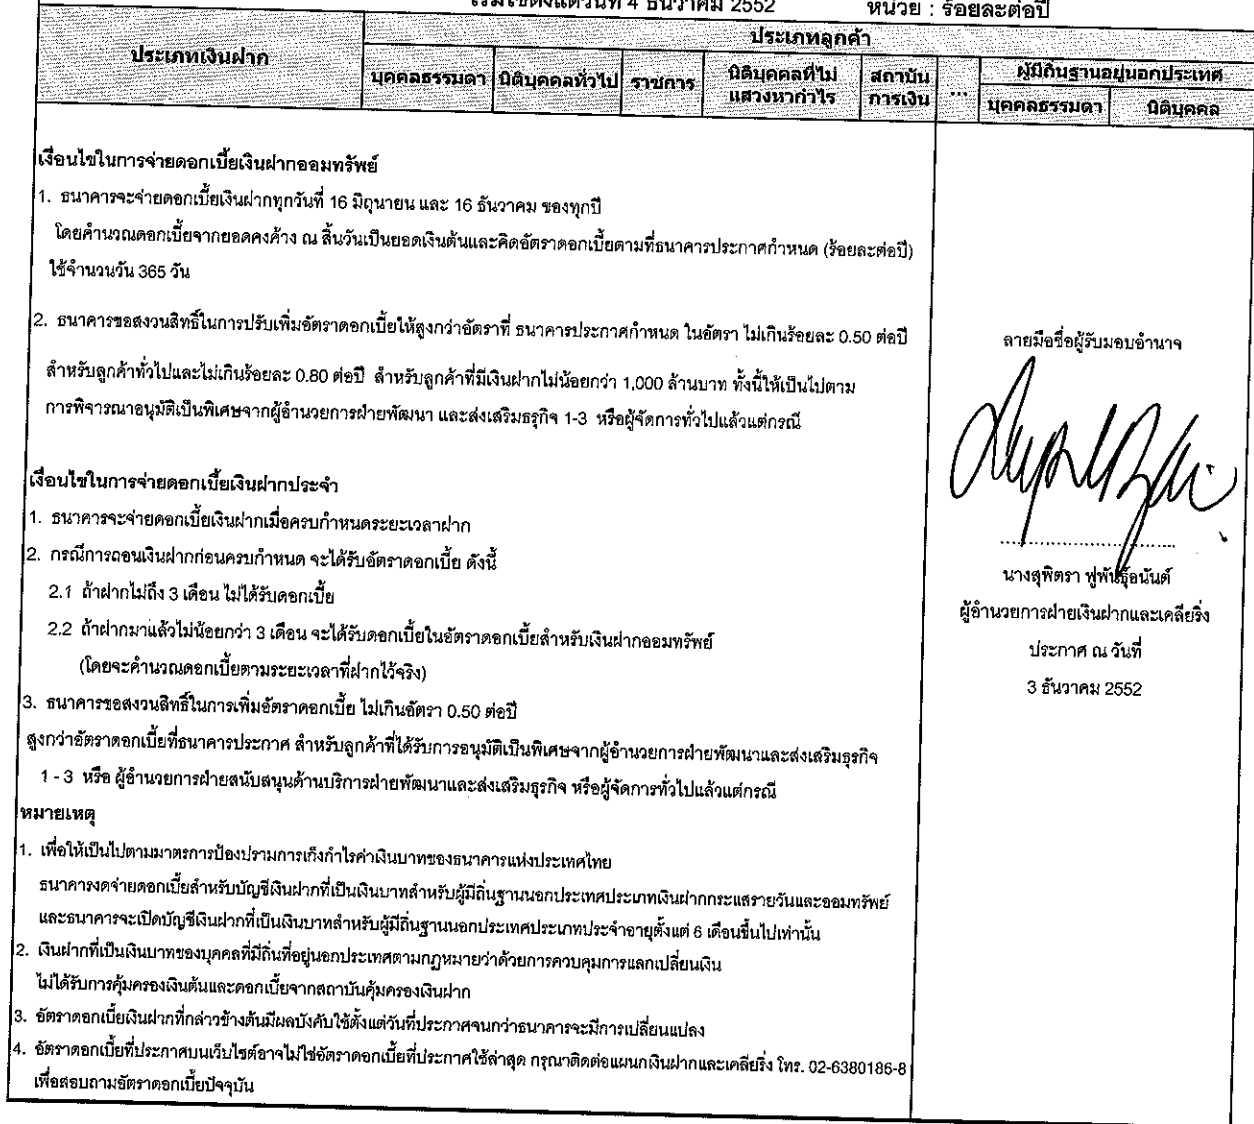 เริ่มใช้ตั้งแต่วันที่ 4 ธันวาคม 2552 หน่วย : ร้อยละต่อปี
ประเภทเงินฝาก
ประเภทลูกค้า
บุคคลธรรมดา นิติบุคคลทั่วไป ราชการ นิติบุคคลที่ไม่แสวงหากำไร สถาบันการเงิน ... ผู้มีถิ่นฐานอยู่นอกประเทศ
บุคคลธรรมดา นิติบุคคล
เงื่อนไขในการจ่ายดอกเบี้ยเงินฝากออมทรัพย์
1. ธนาคารจะจ่ายดอกเบี้ยเงินฝากทุกวันที่ 16 มิถุนายน และ 16 ธันวาคม ของทุกปี
โดยคำนวณดอกเบี้ยจากยอดคงค้าง ณ สิ้นวันเป็นยอดเงินต้นและคิดอัตราดอกเบี้ยตามที่ธนาคารประกาศกำหนด (ร้อยละต่อปี)
ใช้จำนวนวัน 365 วัน
2. ธนาคารขอสงวนสิทธิ์ในการปรับเพิ่มอัตราดอกเบี้ยให้สูงกว่าอัตราที่ ธนาคารประกาศกำหนด ในอัตรา ไม่เกินร้อยละ 0.50 ต่อปี
สำหรับลูกค้าทั่วไปและไม่เกินร้อยละ 0.80 ต่อปี สำหรับลูกค้าที่มีเงินฝากไม่น้อยกว่า 1,000 ล้านบาท ทั้งนี้ให้เป็นไปตาม
การพิจารณาอนุมัติเป็นพิเศษจากผู้อำนวยการฝ่ายพัฒนา และส่งเสริมธุรกิจ 1-3 หรือผู้จัดการทั่วไปแล้วแต่กรณี
เงื่อนไขในการจ่ายดอกเบี้ยเงินฝากประจำ
1. ธนาคารจะจ่ายดอกเบี้ยเงินฝากเมื่อครบกำหนดระยะเวลาฝาก
2. กรณีการถอนเงินฝากก่อนครบกำหนด จะได้รับอัตราดอกเบี้ย ดังนี้
2.1 ถ้าฝากไม่ถึง 3 เดือน ไม่ได้รับดอกเบี้ย
2.2 ถ้าฝากมาแล้วไม่น้อยกว่า 3 เดือน จะได้รับดอกเบี้ยในอัตราดอกเบี้ยสำหรับเงินฝากออมทรัพย์
(โดยจะคำนวณดอกเบี้ยตามระยะเวลาที่ฝากไว้จริง)
3. ธนาคารขอสงวนสิทธิ์ในการเพิ่มอัตราดอกเบี้ย ไม่เกินอัตรา 0.50 ต่อปี
สูงกว่าอัตราดอกเบี้ยที่ธนาคารประกาศ สำหรับลูกค้าที่ได้รับการอนุมัติเป็นพิเศษจากผู้อำนวยการฝ่ายพัฒนาและส่งเสริมธุรกิจ
1 - 3 หรือ ผู้อำนวยการฝ่ายสนับสนุนด้านบริการฝ่ายพัฒนาและส่งเสริมธุรกิจ หรือผู้จัดการทั่วไปแล้วแต่กรณี
หมายเหตุ
1. เพื่อให้เป็นไปตามมาตรการป้องปรามการเก็งกำไรค่าเงินบาทของธนาคารแห่งประเทศไทย
ธนาคารงดจ่ายดอกเบี้ยสำหรับบัญชีเงินฝากที่เป็นเงินบาทสำหรับผู้มีถิ่นฐานนอกประเทศประเภทเงินฝากกระแสรายวันและออมทรัพย์
และธนาคารจะเปิดบัญชีเงินฝากที่เป็นเงินบาทสำหรับผู้มีถิ่นฐานนอกประเทศประเภทประจำอายุตั้งแต่ 6 เดือนขึ้นไปเท่านั้น
2. เงินฝากที่เป็นเงินบาทของบุคคลที่มีถิ่นที่อยู่นอกประเทศตามกฎหมายว่าด้วยการควบคุมการแลกเปลี่ยนเงิน
ไม่ได้รับการคุ้มครองเงินต้นและดอกเบี้ยจากสถาบันคุ้มครองเงินฝาก
3. อัตราดอกเบี้ยเงินฝากที่กล่าวข้างต้นมีผลบังคับใช้ตั้งแต่วันที่ประกาศจนกว่าธนาคารจะมีการเปลี่ยนแปลง
4. อัตราดอกเบี้ยที่ประกาศบนเว็บไซต์อาจไม่ใช่อัตราดอกเบี้ยที่ประกาศใช้ล่าสุด กรุณาติดต่อแผนกเงินฝากและเคลียริ่ง โทร. 02-6380186-8
เพื่อสอบถามอัตราดอกเบี้ยปัจจุบัน
ลายมือชื่อผู้รับมอบอำนาจ
นางสุพิตรา ฟูพันธุ์อนันต์
ผู้อำนวยการฝ่ายเงินฝากและเคลียริ่ง
ประกาศ ณ วันที่
3 ธันวาคม 2552